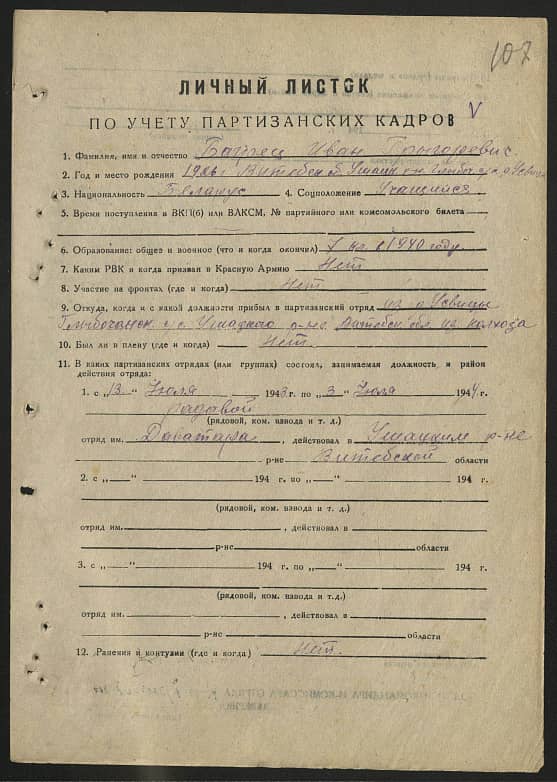 107
ЛИЧНЫЙ ЛИСТОК
ПО УЧЕТУ ПАРТИЗАНСКИХ КАДРОВ V
1. Фамилия, имя и отчество Иван Григорьевич
2. Год и место рождения 1926 г Витебской Ушац
3. Национальность Беларус 4. Соцположение Учащийся
5. Время поступления в ВКП(б) или ВЛКСМ, № партийного или комсомольского билета
6. Образование: общее и военное (что и когда окончил) 7 кл. в 1940 году
7. Каким РВК и когда призван в Красную Армию Нет
8. Участие на фронтах (где и когда) Нет
9. Откуда, когда и с какой должности прибыл в партизанский отряд из д. Усвица
с/с Ушацкого р-не Витебск обл из колхоза
10. Был ли в плену (где и когда) Нет.
11. В каких партизанских отрядах (или группах) состоял, занимаемая должность, и район
действия отряда:
1. с „13“ Июля 1943 г. по „3“ Июля 1944 г.
радавой
(рядовой, ком. взвода и т. д.)
отряд им. Даватара, действовал в Ушацким р-не
р-не Витебской области
2. с „ “ 194 г. по „ “ 194 г.
(рядовой, ком. взвода и т. д.)
отряд им. , действовал в
р-не области
3. с „ “ 194 г. по „ “ 194 г.
(рядовой, ком. взвода и т.д.)
отряд им. , действовал в
р-не области
12. Ранения и контузии (где и когда) Нет.